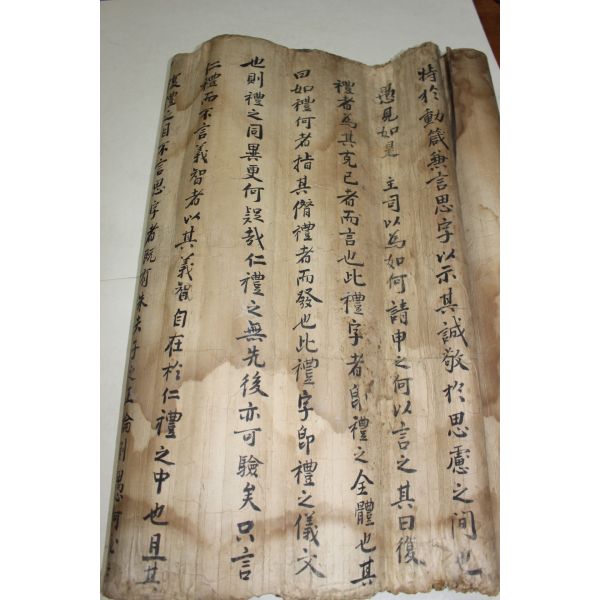 特於動箴兼言思字以示其誠敬於思慮之間也
愚見如是 主司以為如何請申之何以言之其曰復
禮者為其克己者而言也此禮字者即禮之全體也其
曰如禮何者指其僭禮者而發也此禮字即禮之儀文
也則禮之同異更何疑哉仁禮之無先後亦可驗矣只言
仁禮而不言義智者以其義智自在於仁禮之中也且其
復禮之目不言思字者既有朱夫子之正論則愚何